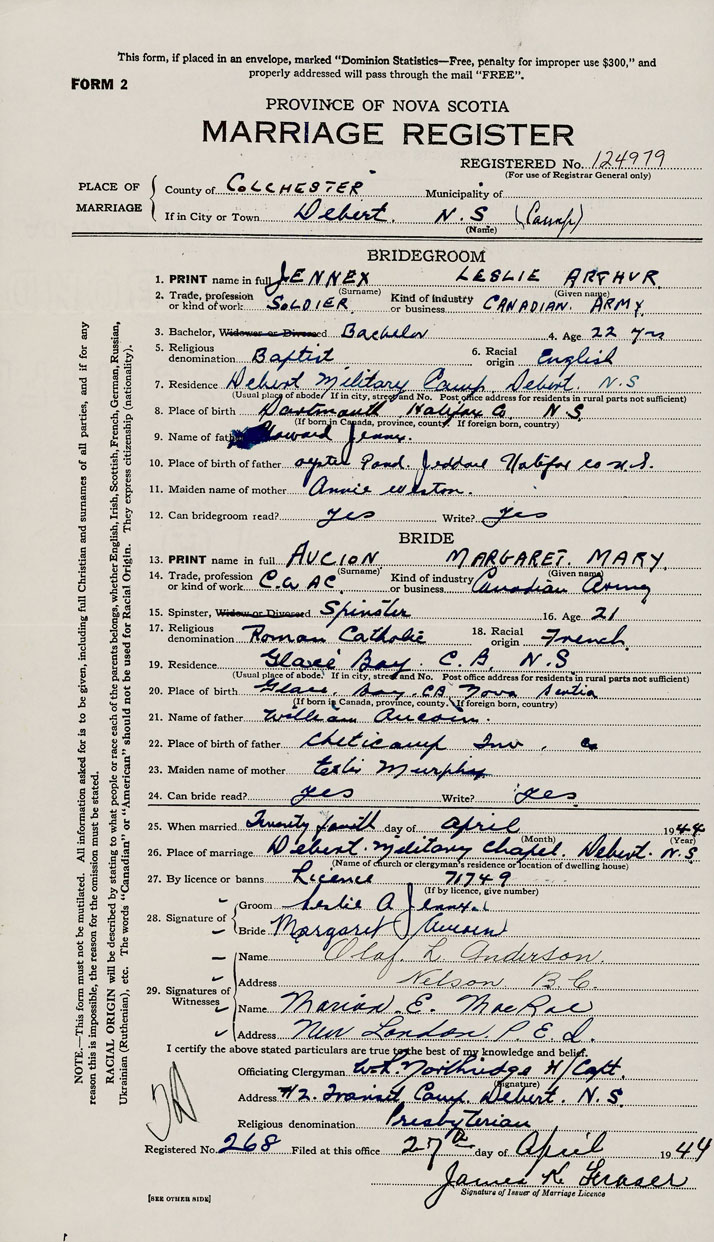 This form, if placed in an envelope, marked "Dominion Statistics—Free, penalty for improper use $300," and
properly addressed will pass through the mail "FREE".
FORM 2
PROVINCE OF NOVA SCOTIA
MARRIAGE REGISTER
REGISTERED No. 124979
(For use of Registrar General only)
PLACE OF MARRIAGE
County of COLCHESTER Municipality of
If in City or Town Debert. N.S (Camp)
(Name)
BRIDEGROOM
1. PRINT name in full JENNEX LESLIE ARTHUR
(Surname) (Given name)
2. Trade, profession or kind of work SOLDIER Kind of industry or business CANADIAN. ARMY
3. Bachelor, Widower or Divorced Bachelor 4. Age 22 yrs
5. Religious denomination Baptist 6. Racial origin English
7. Residence Debert Military Camp Debert. N.S
(Usual place of abode. If in city, street and No. Post office address for residents in rural parts not sufficient)
8. Place of birth Dartmouth Halifax Co N.S.
(If born in Canada, province, county. If foreign born, country)
9. Name of father Howard Jennex.
10. Place of birth of father oyster Pond. Jeddore Halifax co N.S.
11. Maiden name of mother Annie Weston.
12. Can bridegroom read? yes Write? yes
BRIDE
13. PRINT name in full AUCION MARGARET. MARY.
(Surname) (Given name)
14. Trade, profession or kind of work C.W.A.C. Kind of industry or business Canadian Army
15. Spinster, Widow or Divorced Spinster 16. Age 21
17. Religious denomination Roman Catholic 18. Racial origin French
19. Residence Glace Bay. C.B. N.S
(Usual place of abode. If in city, street and No. Post office address for residents in rural parts not sufficient)
20. Place of birth Glace Bay. CB. Nova Scotia
(If born in Canada, province, county. If foreign born, country)
21. Name of father William Aucoin.
22. Place of birth of father Cheticamp Inv. Co
23. Maiden name of mother Murphy
24. Can bride read? yes Write? yes
25. When married Twenty fourth day of April 1944
(Month) (Year)
26. Place of marriage Debert. Military Chapel. Debert. N.S
(Name of church or clergyman's residence or location of dwelling house)
27. By licence or banns Licence 71749
(If by licence, give number)
28. Signature of
Groom Leslie A Jennex.
Bride Margaret Aucoin
29. Signatures of Witnesses
Name Olaf. L. Anderson.
Address Nelson B.C.
Name Marion. E. MacRae
Address New London. P.E.I.
I certify the above stated particulars are true to the best of my knowledge and belief.
Officiating Clergyman W.R. Northridge H/Capt.
(Signature)
Address #2. Transit Camp. Debert. N.S.
Religious denomination Presbyterian
Registered No. 268 Filed at this office 27th day of April 1944
James K. Fraser
Signature of Issuer of Marriage Licence
[SEE OTHER SIDE]
NOTE.—This form must not be mutilated. All information asked for is to be given, including full Christian and surnames of all parties, and if for any
reason this is impossible, the reason for the omission must be stated.
RACIAL ORIGIN will be described by stating to what people or race each of the parents belongs, whether English, Irish, Scottish, French, German, Russian,
Ukrainian (Ruthenian), etc. The words "Canadian" or "American" should not be used for Racial Origin. They express citizenship (nationality).